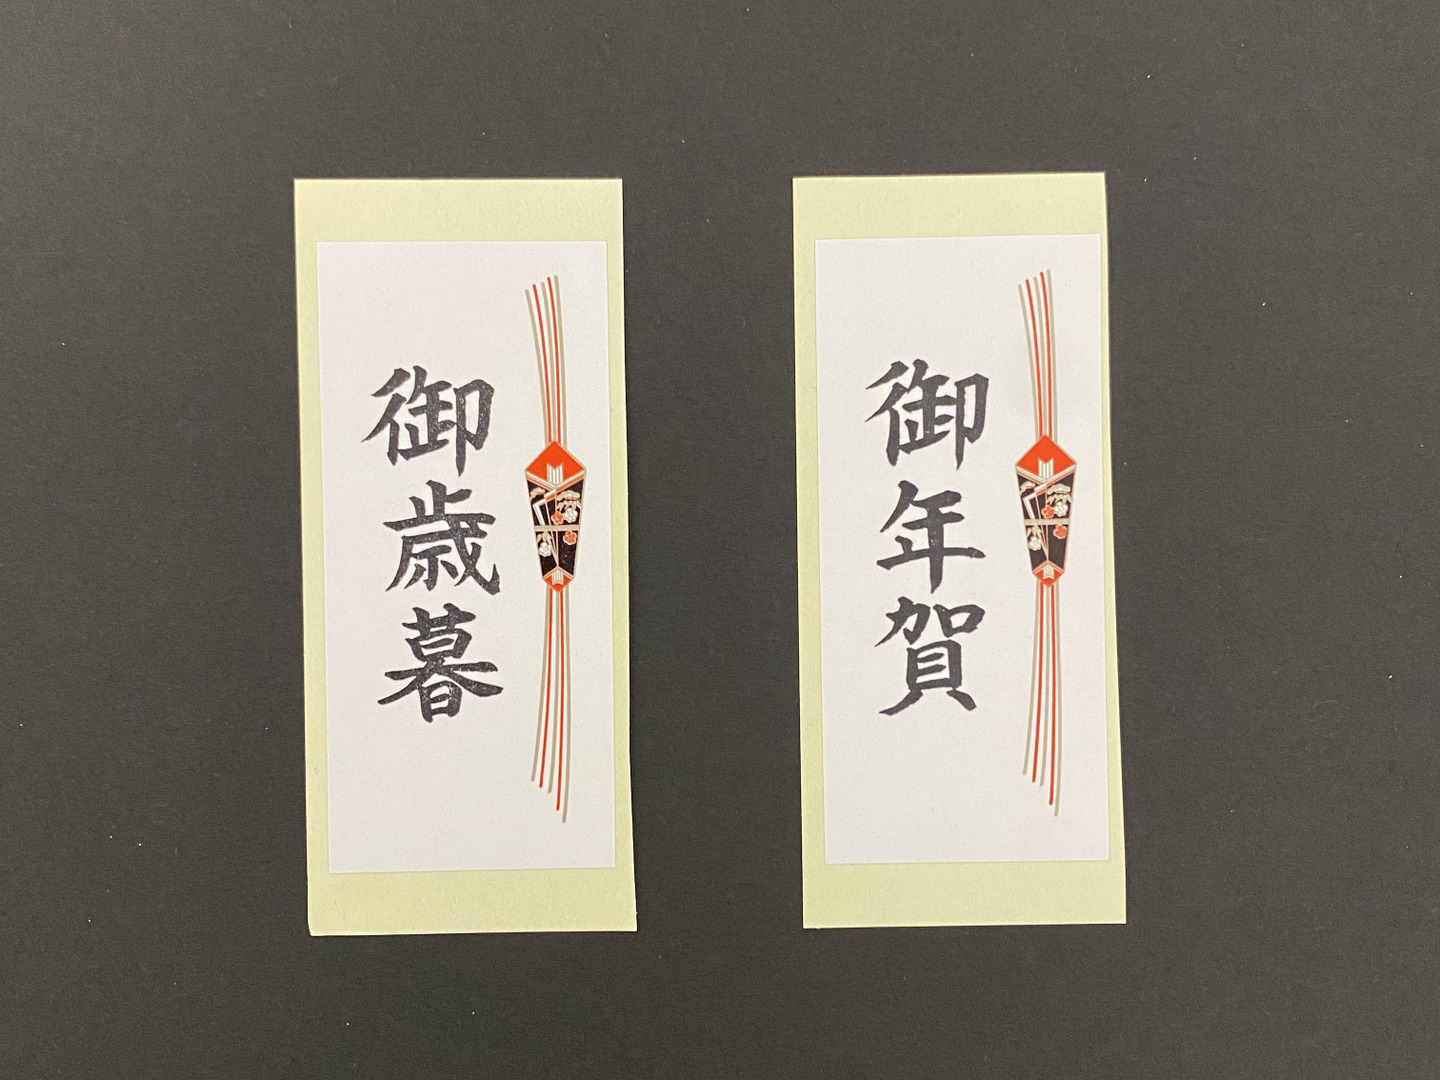 御歳暮
御年賀